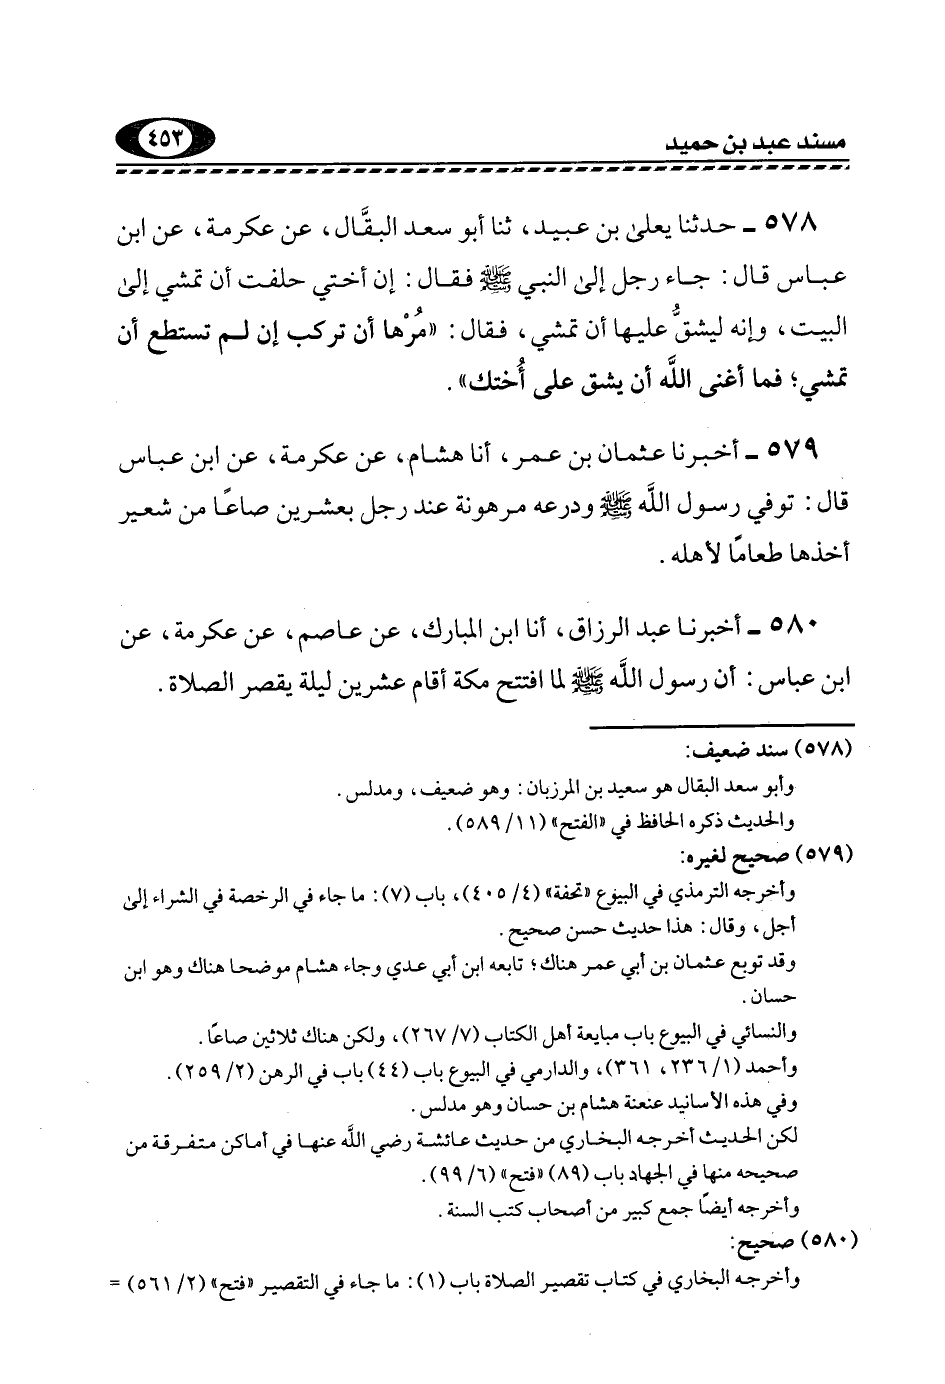 مسند عبد بن حميد
٤٥٣
٥٧٨ ـ حدثنا يعلى بن عبيد، ثنا أبو سعد البقَّال، عن عكرمة، عن ابن
عباس قال: جاء رجل إلى النبي ﷺ فقال: إن أختي حلفت أن تمشي إلى
البيت، وإنه ليشقُّ عليها أن تمشي، فقال: «مُرْها أن تركب إن لم تستطع أن
تمشي؛ فما أغنى اللَّه أن يشق على أُختك».
٥٧٩ ـ أخبرنا عثمان بن عمر، أنا هشام، عن عكرمة، عن ابن عباس
قال: توفي رسول اللَّه ﷺ ودرعه مرهونة عند رجل بعشرين صاعًا من شعير
أخذها طعامًا لأهله.
٥٨٠ ـ أخبرنا عبد الرزاق، أنا ابن المبارك، عن عاصم، عن عكرمة، عن
ابن عباس: أن رسول اللَّه ﷺ لما افتتح مكة أقام عشرين ليلة يقصر الصلاة.
(٥٧٨) سند ضعيف:
وأبو سعد البقال هو سعيد بن المرزبان: وهو ضعيف، ومدلس.
والحديث ذكره الحافظ في «الفتح» (١١/ ٥٨٩).
(٥٧٩) صحيح لغيره:
وأخرجه الترمذي في البيوع «تحفة» (٤/ ٤٠٥)، باب (٧): ما جاء في الرخصة في الشراء إلى
أجل، وقال: هذا حديث حسن صحيح.
وقد توبع عثمان بن أبي عمر هناك؛ تابعه ابن أبي عدي وجاء هشام موضحا هناك وهو ابن
حسان.
والنسائي في البيوع باب مبايعة أهل الكتاب (٧/ ٢٦٧)، ولكن هناك ثلاثين صاعًا.
وأحمد (١/ ٢٣٦، ٣٦١)، والدارمي في البيوع باب (٤٤) باب في الرهن (٢/ ٢٥٩).
وفي هذه الأسانيد عنعنة هشام بن حسان وهو مدلس.
لكن الحديث أخرجه البخاري من حديث عائشة رضي اللَّه عنها في أماكن متفرقة من
صحيحه منها في الجهاد باب (٨٩) «فتح» (٦/ ٩٩).
وأخرجه أيضًا جمع كبير من أصحاب كتب السنة.
(٥٨٠) صحيح:
وأخرجه البخاري في كتاب تقصير الصلاة باب (١): ما جاء في التقصير «فتح» (٢/ ٥٦١) =